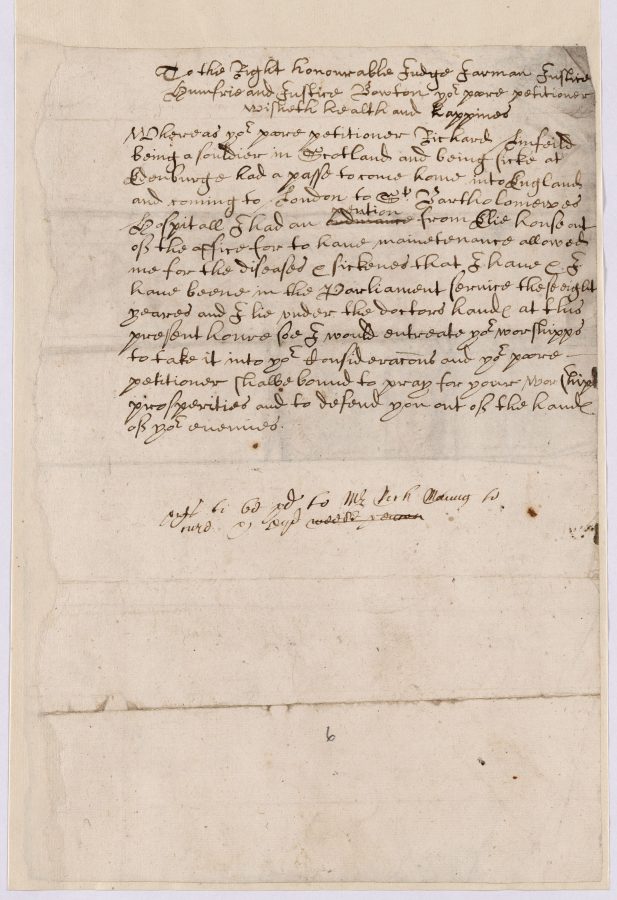 To the Right honourable Judge Jarman Justice
Humfrie and Justice Rowton yor pore petitioner
wisheth health and happines
Whereas yor pore petitioner Richard
being a souldier in Scotland and being sicke at
Edenburge had a passe to come home into England
and coming to London to St Bartholomewes
pention
Hospitall I had an ordinance from Elie house out
of the office for to have maintenance allowed
me for the diseases & sickenes that I have & I
have beene in the Parliament service these eight
yeares and I lie under the doctors hand at this
present houre soe I would entreate yor worshipps
to take it into yor Consideracons and yor poore
petitioner shalbe bound to pray for your worshipps
prosperities and to defend you out of the hand
of yor enemies.
to Mr to
cure
6